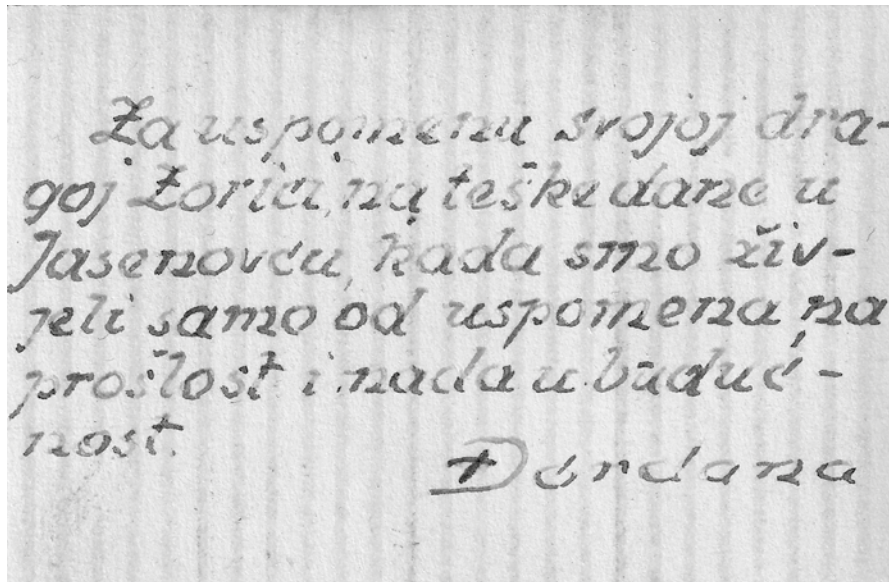 Za uspomenu svojoj dra-
goj Zorici, na teške dane u
Jasenovcu, kada smo živ-
jeli samo od uspomena na
prošlost i nada u buduć-
nost.